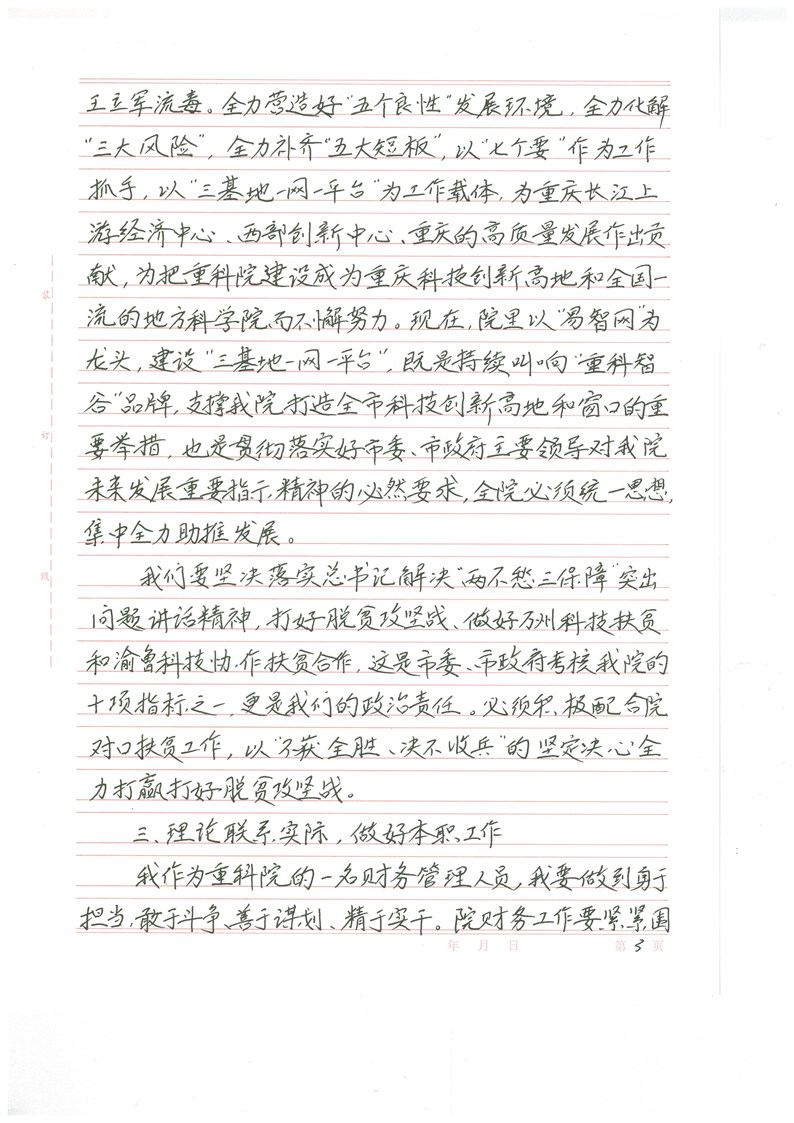 王立军流毒。全力营造好“五个良性”发展环境，全力化解
“三大风险”，全力补齐“五大短板”，以“七个要”作为工作
抓手，以“三基地一网一平台”为工作载体，为重庆长江上
游经济中心、西部创新中心、重庆的高质量发展作出贡
献，为把重科院建设成为重庆科技创新高地和全国一
流的地方科学院而不懈努力。现在，院里以“易智网”为
龙头，建设“三基地一网一平台”，既是持续叫响“重科智
谷”品牌，支撑我院打造全市科技创新高地和窗口的重
要举措，也是贯彻落实好市委、市政府主要领导对我院
未来发展重要指示精神的必然要求，全院必须统一思想，
集中全力助推发展。
我们要坚决落实总书记解决“两不愁三保障”突出
问题讲话精神，打好脱贫攻坚战、做好万州科技扶贫
和渝鲁科技协作扶贫合作，这是市委、市政府考核我院的
十项指标之一，更是我们的政治责任。必须积极配合院
对口扶贫工作，以“不获全胜、决不收兵”的坚定决心全
力打赢打好脱贫攻坚战。
三、理论联系实际，做好本职工作
我作为重科院的一名财务管理人员，我要做到勇于
担当，敢于斗争、善于谋划、精于实干。院财务工作要紧紧围
年 月 日 第 3 页
装
订
线